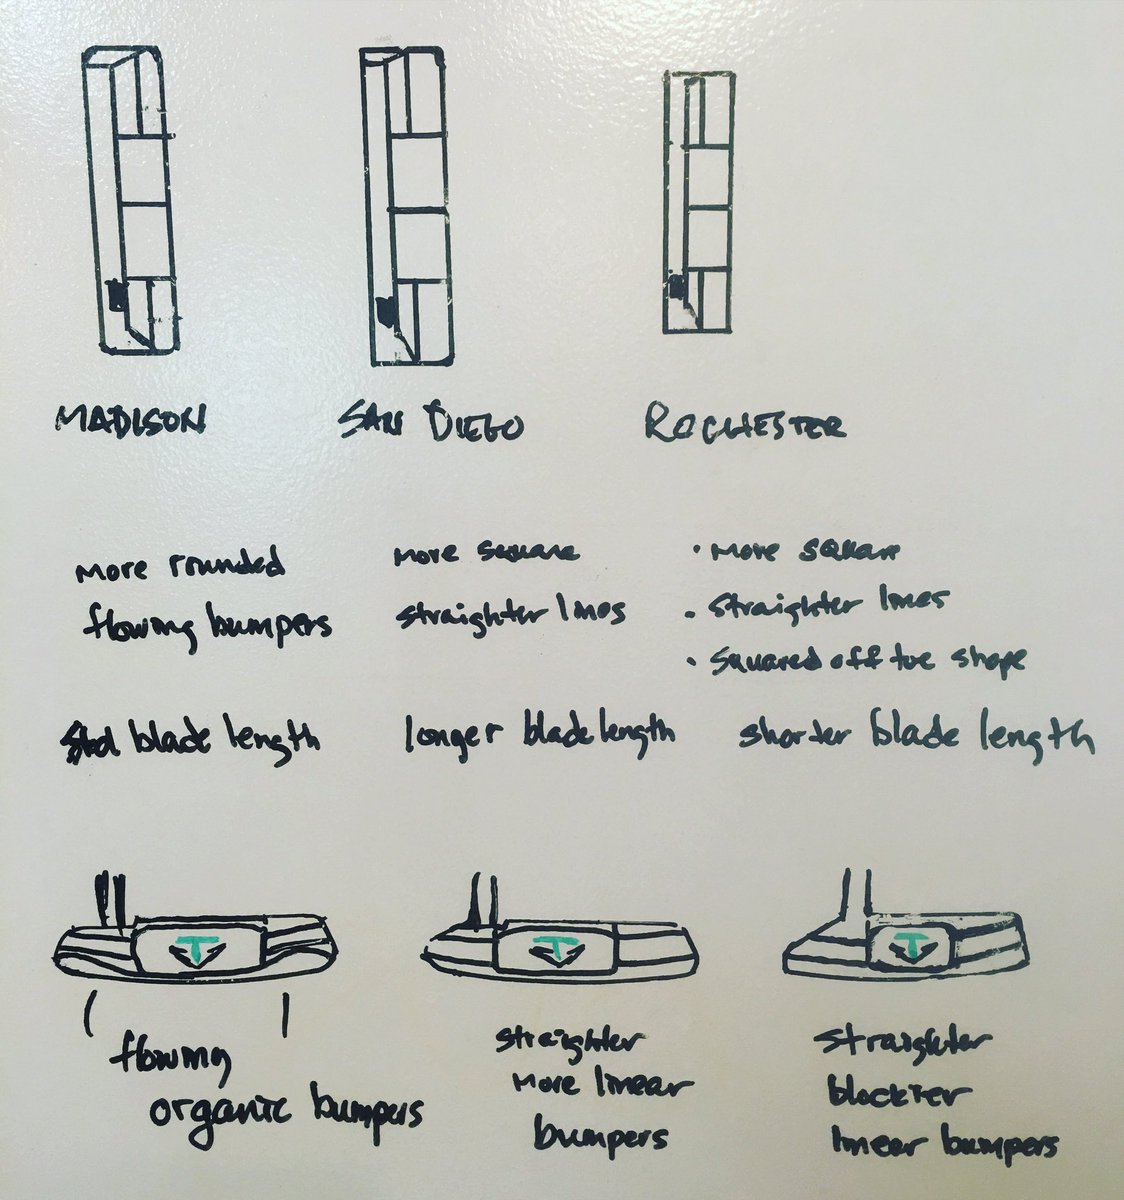 MADISON
SAN DIEGO
ROCHESTER
more rounded
flowing bumpers
std blade length
more square
straighter lines
longer blade length
• more square
• straighter lines
• squared off toe shape
shorter blade length
T
T
T
flowing
organic bumpers
straighter
more linear
bumpers
straighter
blockier
linear bumpers